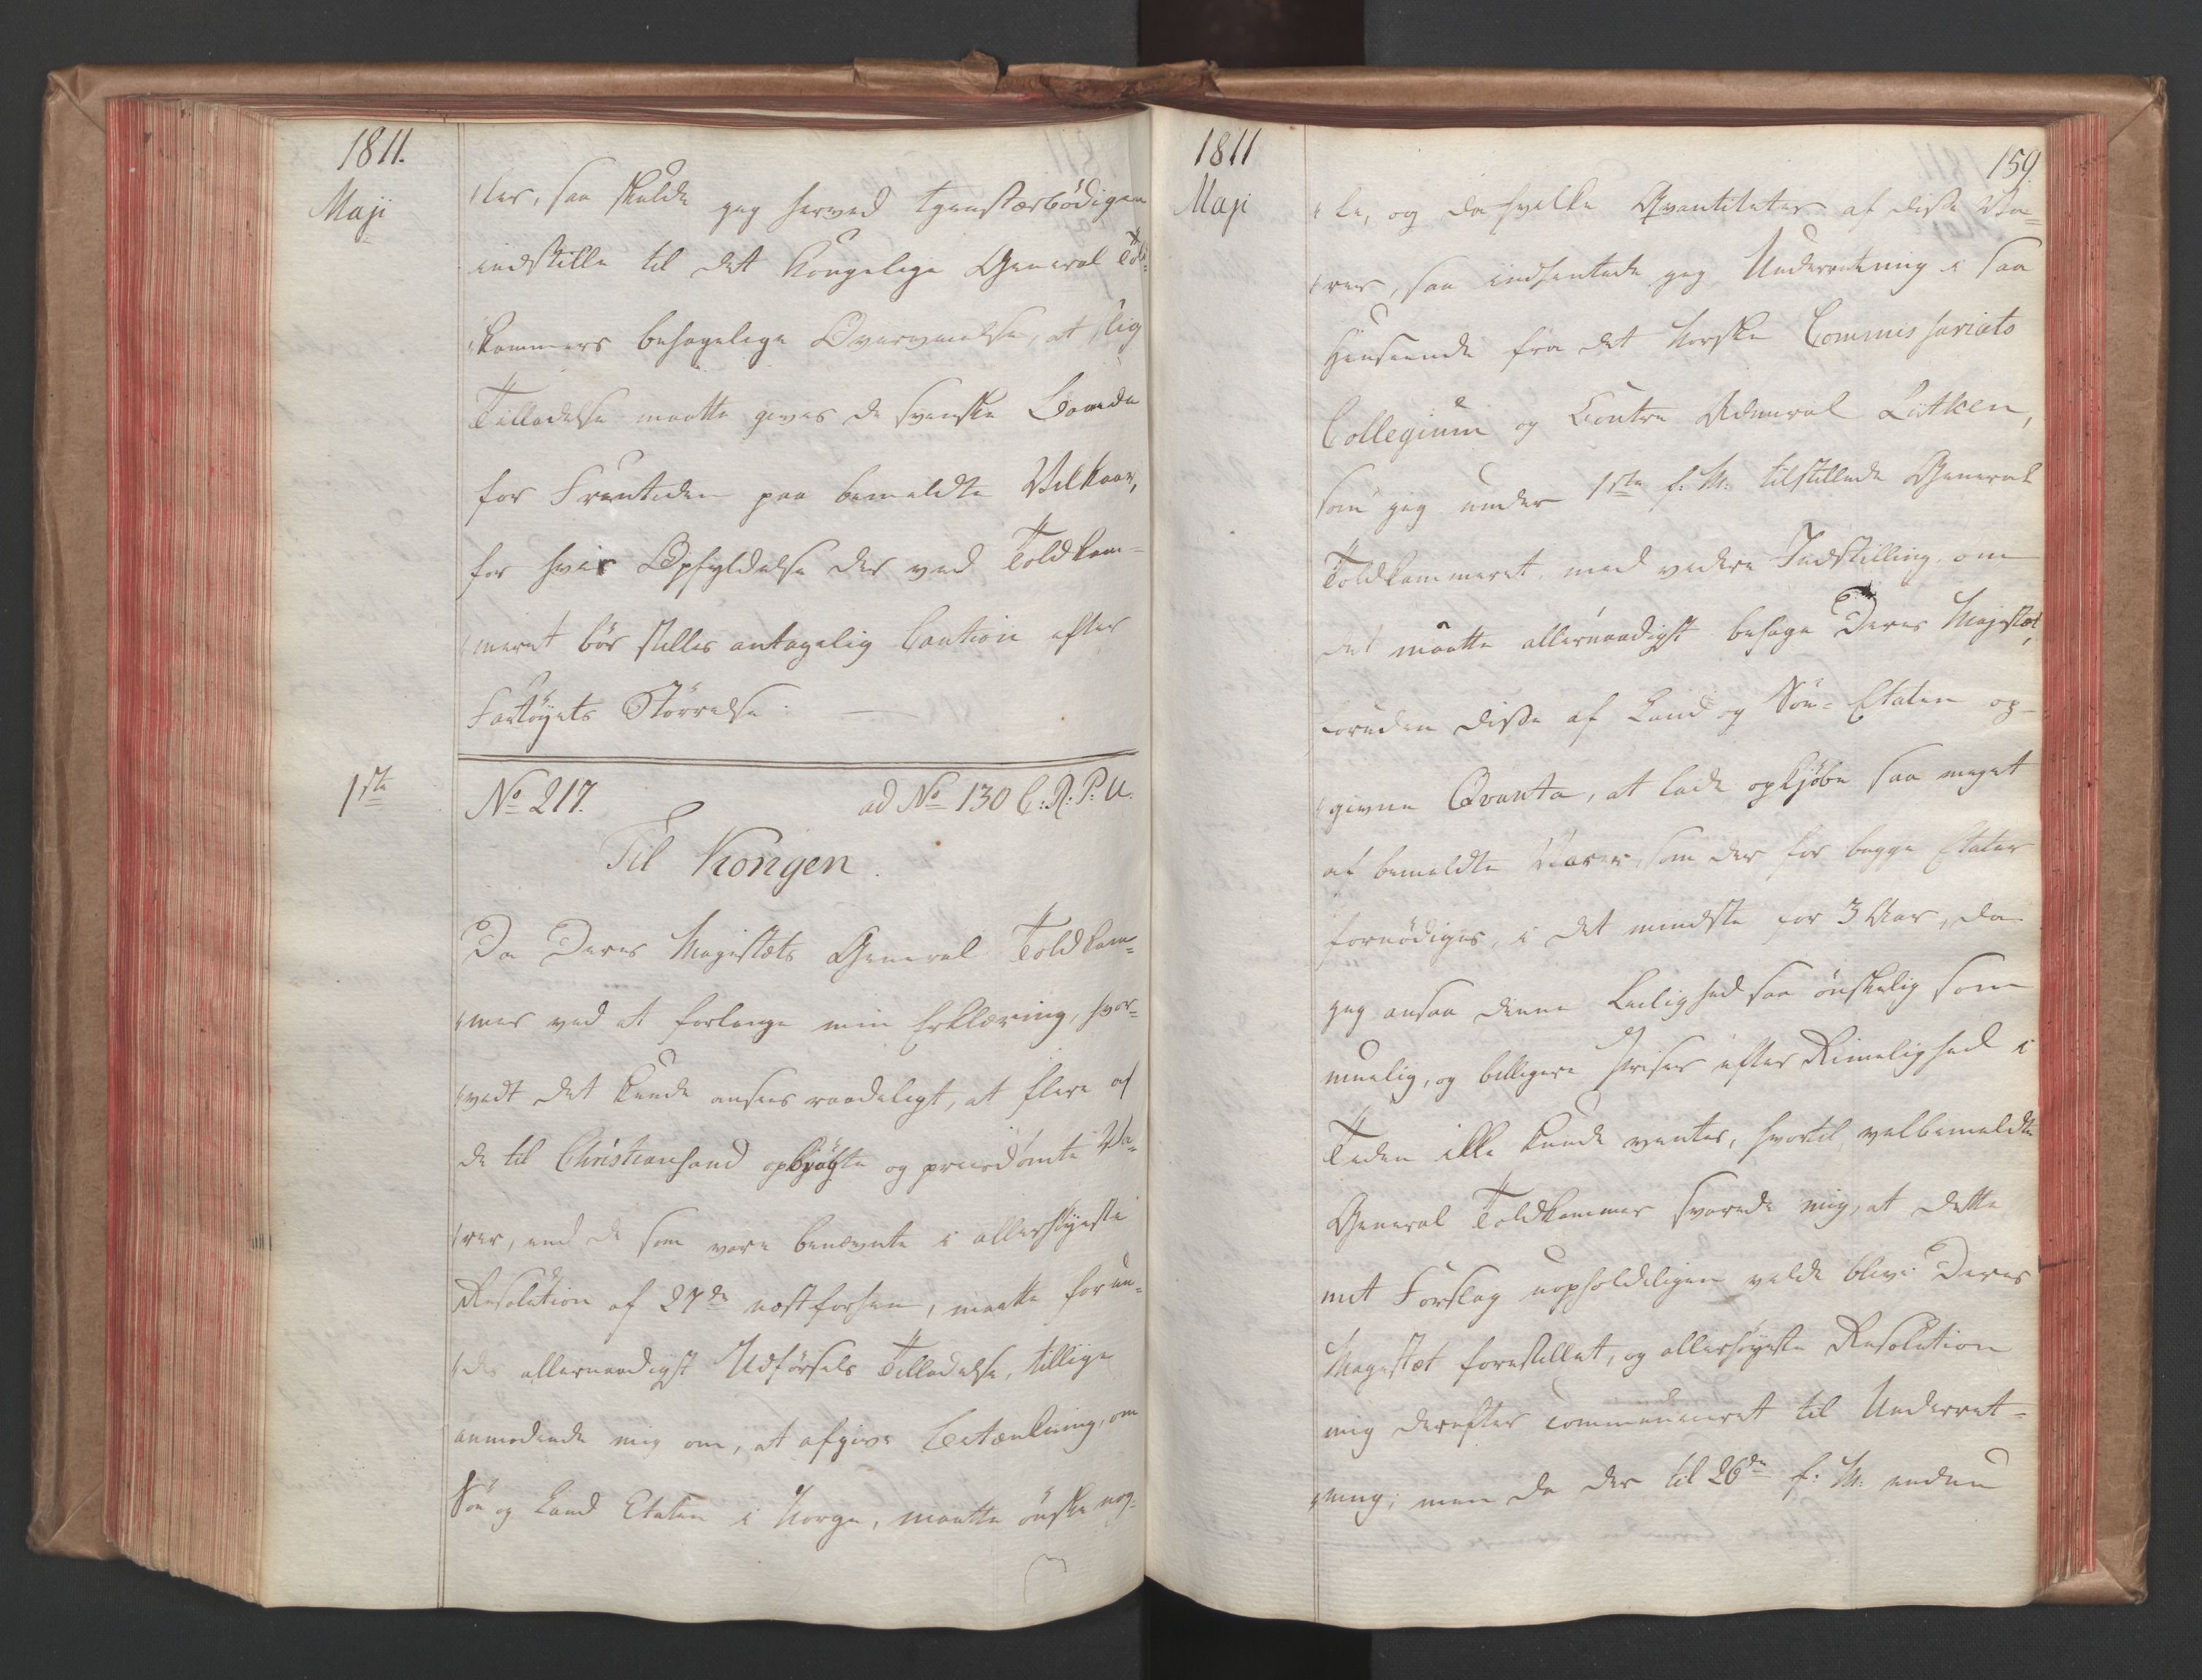 1811.
Maji
ler, saa skulde jeg herved tjenstærbödigen
indstille til det Kongelige General Told-
kammers behagelige Overveielse, at slig
Tilladelse maatte gives de svenske Baade
for Fremtiden paa bemeldte Vilkaar,
for hvis Opfyldelse der ved Toldkam-
meret bör stilles antagelig Caution efter
Fartöyets Större​lse.
1ste
No 217. ad No 130 C: R: P: U.
Til Kongen.
Da Deres Majestæts General Toldkam-
mer ved at forlange min Erklæring, hvor-
vidt det kunde ansees raadeligt, at flere af
de til Christiansand opbragte og priisdömte Va-
rer, end de som vare benævnte i allerhöyeste
Resolution af 27de næstforhen, maatte forun-
des allernaadigst Udförsels Tilladelse, tillige
anmodede mig om, at afgive Betænkning, om
Söe og Land Etaten i Norge, maatte önske nog-
1811
Maji
159
le, og da hvilke Qvantiteter af disse Va-
rer, saa indhentede jeg Underretning i saa
Henseende fra det Norske Commissariats
Collegium og Contra Admiral Lütken,
som jeg under 1ste f. M. tilstillede General
Toldkammeret, med videre Indstilling om
det maatte allernaadigst behage Deres Majestæt,
foruden disse af Land og Söe-Etaten op-
givne Qvanta, at lade opkjöbe saa meget
af bemeldte Varer, som der for begge Etater
fornödiges, i det mindste for 3 Aar, da
jeg ansaa denne Leilighed saa önskelig som
muelig, og billigere Priser efter Rimelighed i
Tiden ikke kunde ventes, hvortil velbemeldte
General Toldkammer svarede mig, at dette
mit Forslag uopholdeligen vilde blive Deres
Majestæt forestillet, og allerhöyeste Resolution
mig derefter communiceret til Underret-
ning; men da der til 26de f: M: endnu